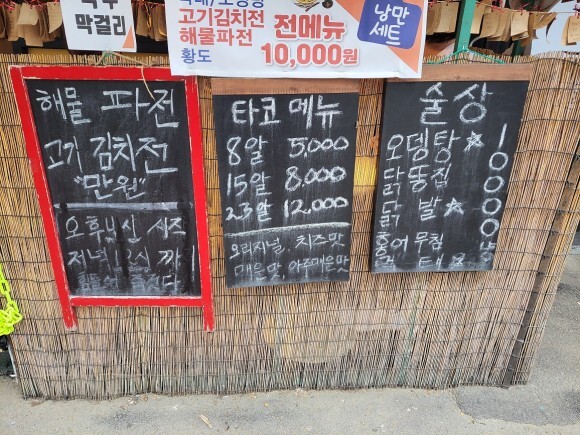 막걸리
고기김치전
해물파전
황도
전메뉴
10,000원
낭만
세트
해물 파전
고기 김치전
"만원"
오후
저녁
타코 메뉴
8알 5,000
15알 8,000
23알 12,000
오리지널, 치즈맛
매운맛, 아주매운맛
술상
오뎅탕
닭똥집
닭 발
홍어무침
10000냥